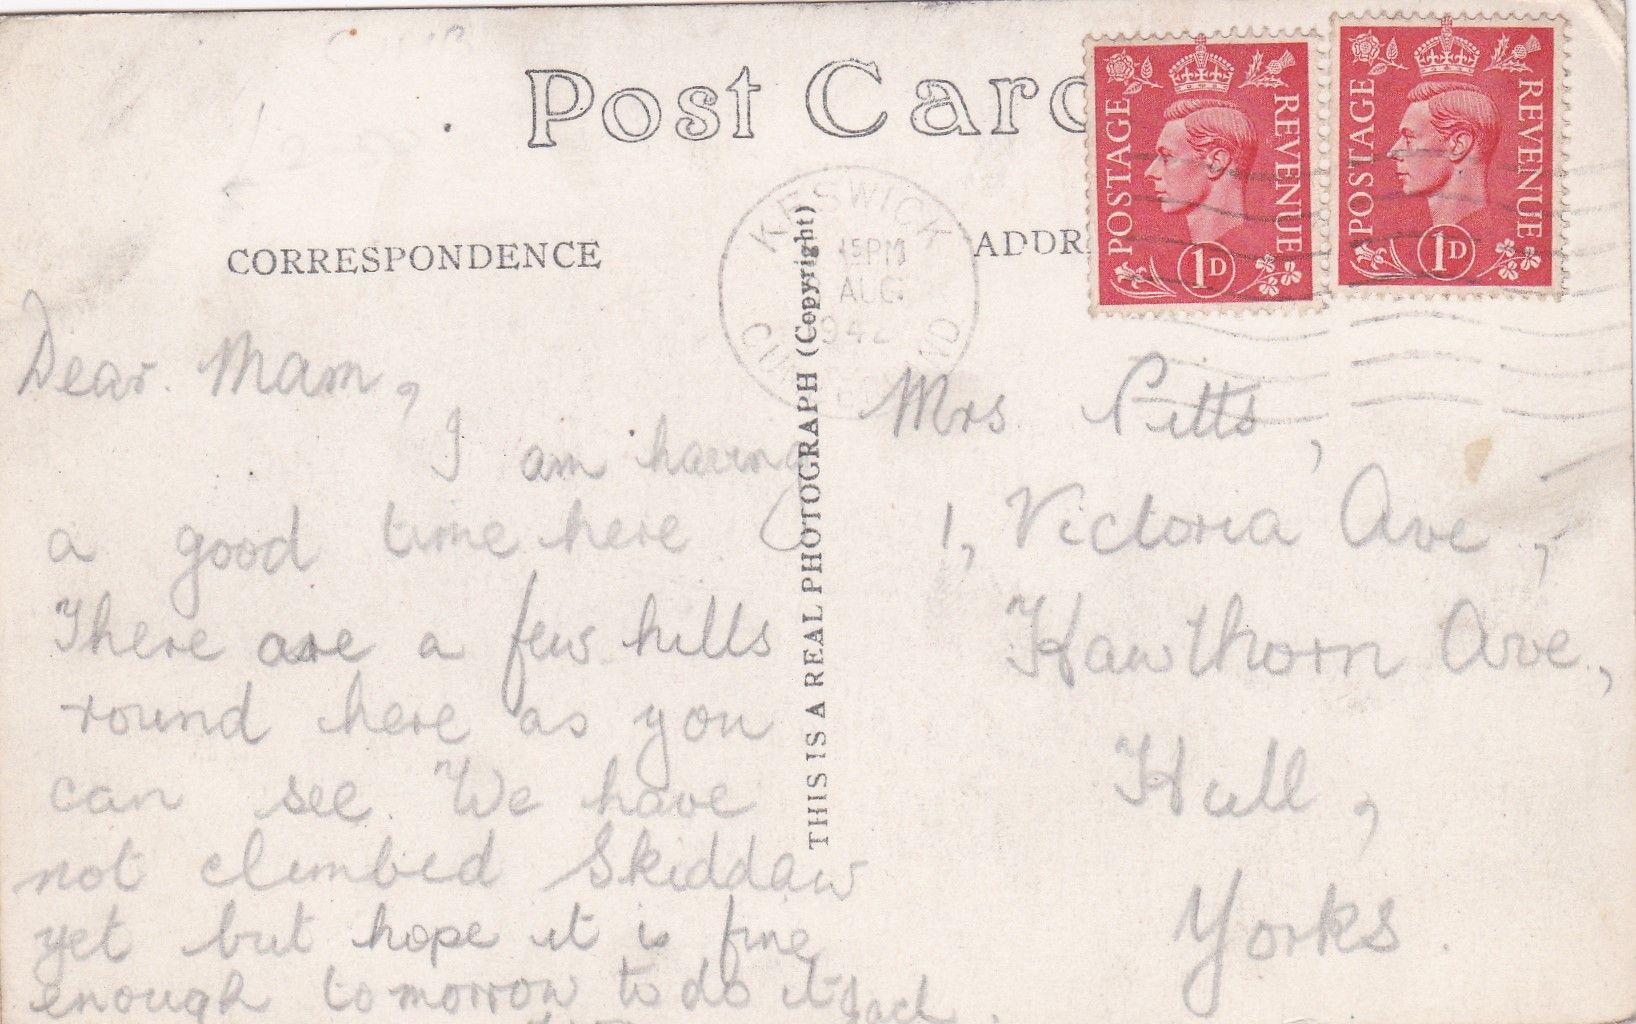 Post Card
CORRESPONDENCE
ADDR
POSTAGE
REVENUE
1D
POSTAGE
REVENUE
1D
KESWICK
15PM
AUG
1942
THIS IS A REAL PHOTOGRAPH (Copyright)
Dear Mam,
I am having
a good time here
There are a few hills
round here as you
can see. We have
not climbed Skiddaw
yet but hope it is fine
enough tomorrow to do it Jack.
Mrs Pitts,
1, Victoria Ave.,
Hawthorn Ave.,
Hull,
Yorks.